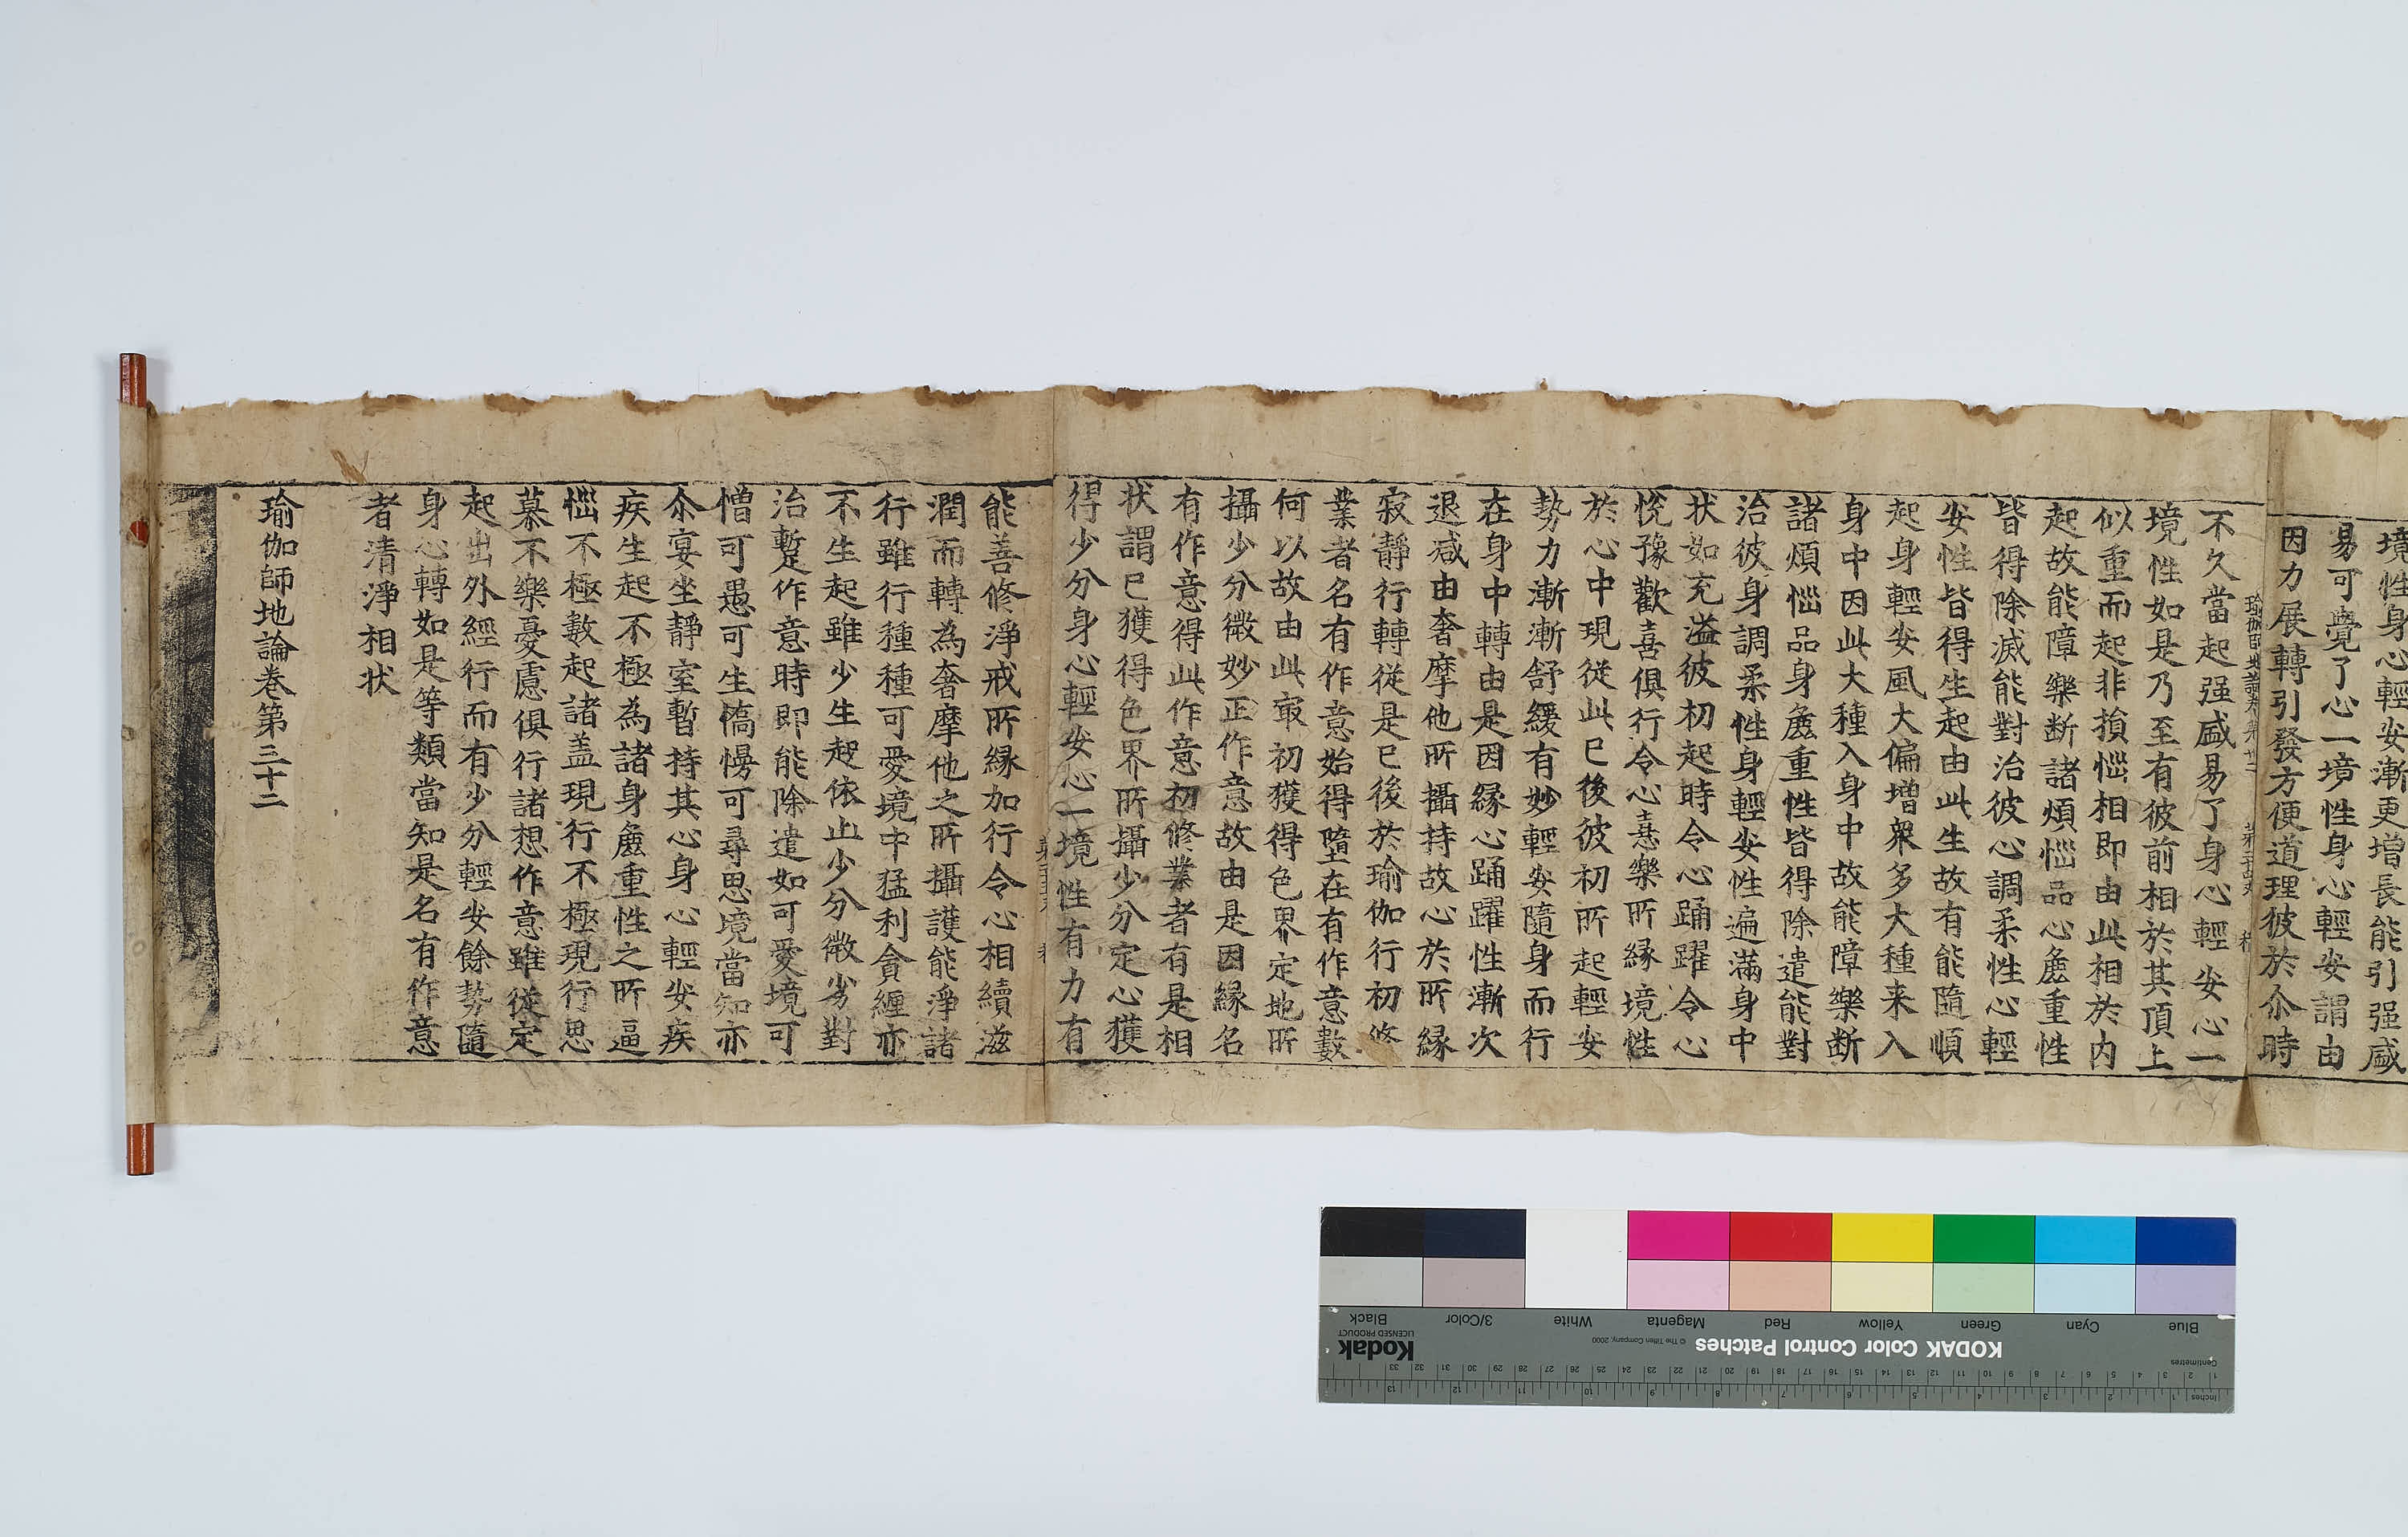 境性身心輕安漸更增長能引强盛
易可覺了心一境性身心輕安謂由
因力展轉引發方便道理彼於尒時
不久當起强盛易了身心輕安心一
境性如是乃至有彼前相於其頂上
似重而起非損惱相即由此相於內
起故能障樂断諸煩惱品心麁重性
皆得除滅能對治彼心調柔性心輕
安性皆得生起由此生故有能隨順
起身輕安風大偏增衆多大種来入
身中因此大種入身中故能障樂断
諸煩惱品身麁重性皆得除遣能對
治彼身調柔性身輕安性遍滿身中
状如充溢彼初起時令心踊躍令心
悅豫歡喜俱行令心憙樂所緣境性
於心中現從此已後彼初所起輕安
勢力漸漸舒緩有妙輕安隨身而行
在身中轉由是因緣心踊躍性漸次
退减由奢摩他所攝持故心於所緣
寂靜行轉從是已後於瑜伽行初修
業者名有作意始得墮在有作意數
何以故由此冣初獲得色界定地所
攝少分微妙正作意故由是因緣名
有作意得此作意初修業者有是相
状謂已獲得色界所攝少分定心獲
得少分身心輕安心一境性有力有
能善修淨戒所緣加行令心相續滋
潤而轉為奢摩他之所攝護能淨諸
行雖行種種可愛境中猛利貪纏亦
不生起雖少生起依止少分微劣對
治蹔作意時即能除遣如可愛境可
憎可愚可生憍慢可尋思境當知亦
尒宴坐靜室暫持其心身心輕安疾
疾生起不極為諸身麁重性之所逼
惱不極數起諸盖現行不極現行思
慕不樂憂慮俱行諸想作意雖從定
起出外經行而有少分輕安餘勢隨
身心轉如是等類當知是名有作意
者清淨相状
瑜伽師地論卷第三十二
KODAK Color Control Patches
Kodak
LICENSED PRODUCT
© The Tiffen Company, 2000
Blue Cyan Green Yellow Red Magenta White 3/Color Black
Centimetres 1 2 3 4 5 6 7 8 9 10 11 12 13 14 15 16 17 18 19 20 21 22 23 24 25 26 27 28 29 30 31 32 33
Inches 1 2 3 4 5 6 7 8 9 10 11 12 13